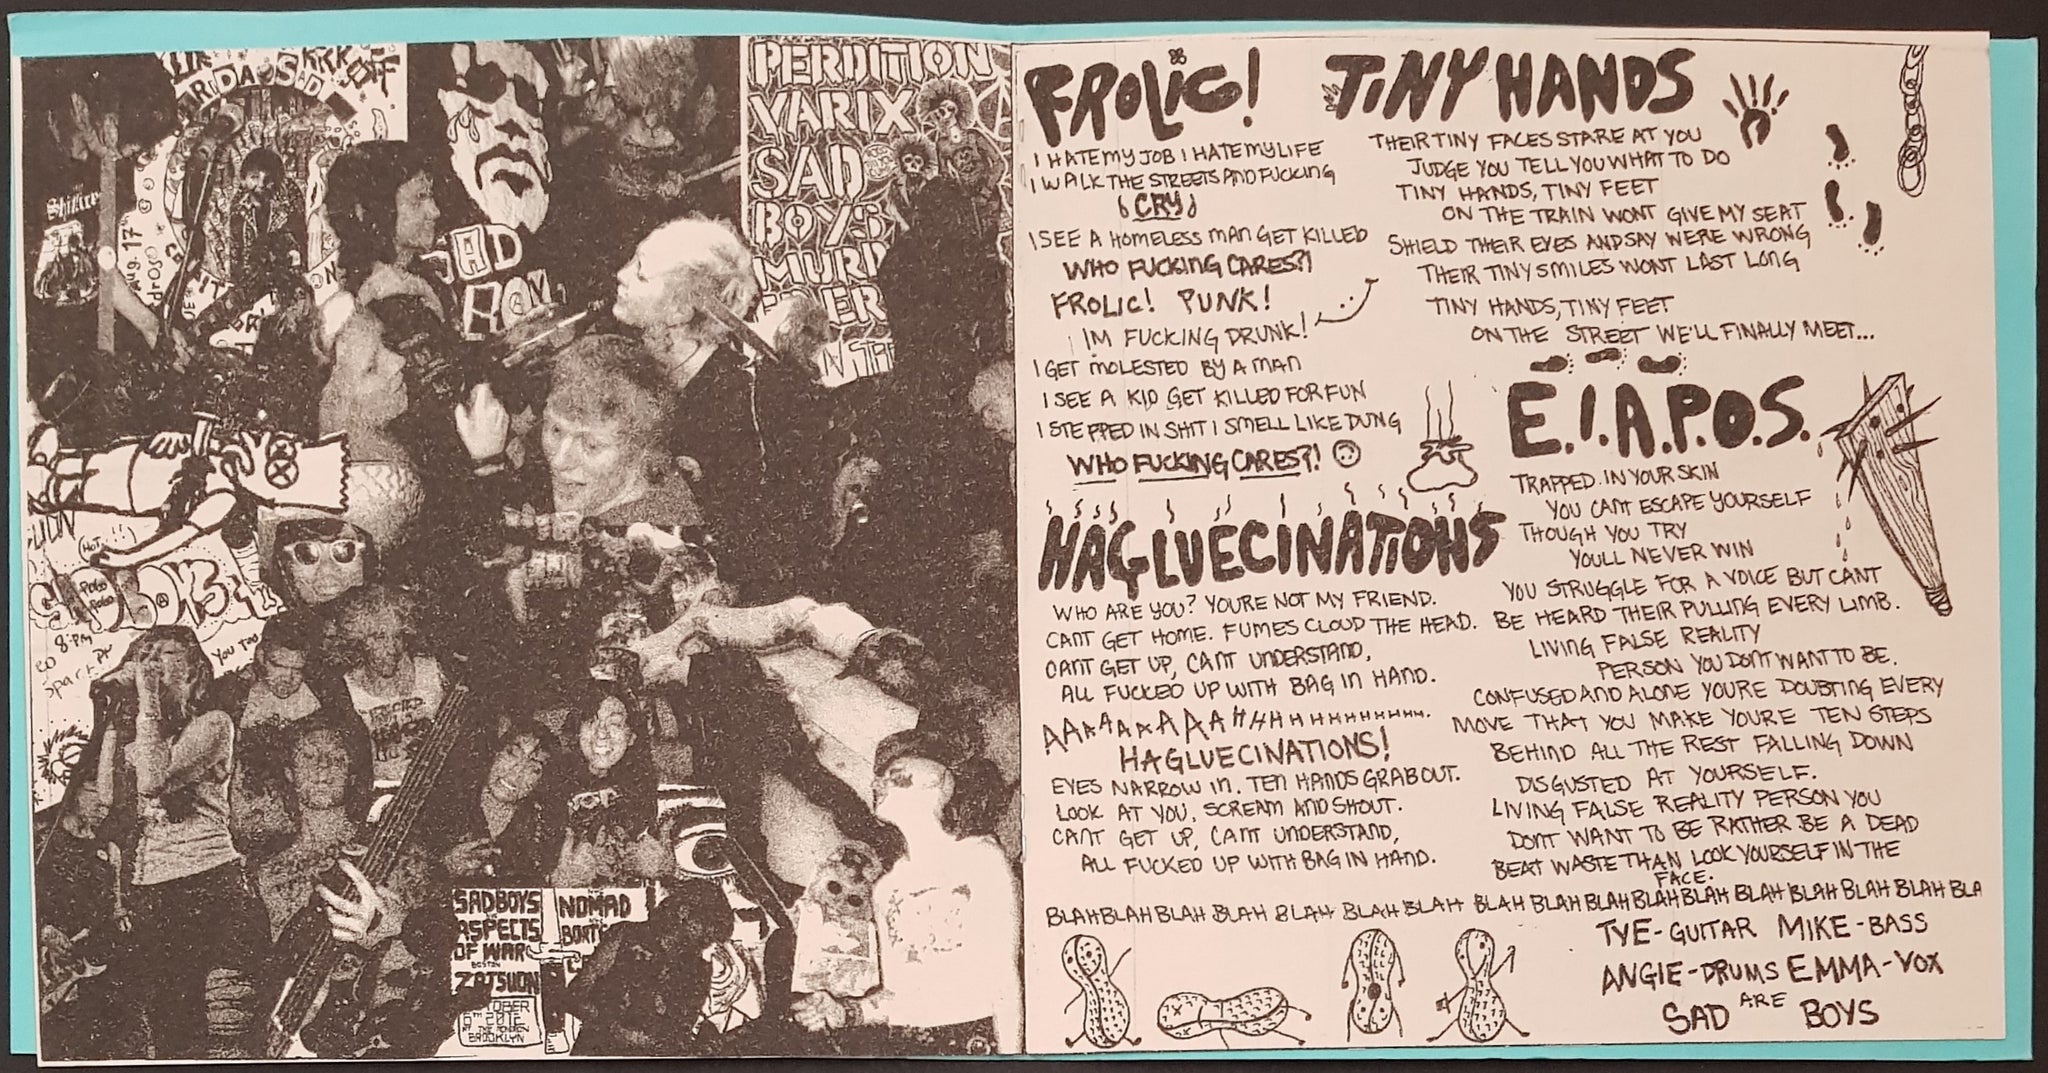 KRK OFF
FRIDAYS
AUG. 17
SAD
BOYS
PERDITION
VARIX
SAD
BOYS
MURD
ER
HOT
POGO
POGO
BOYS
8:PM
Spark
YOU TOO
SADBOYS
ASPECTS
OF WAR
BOSTON
ZATSUON
NOMAD
OBER
6TH 2012
BROOKLYN
FROLIC!
I HATE MY JOB I HATE MY LIFE
I WALK THE STREETS AND FUCKING
CRY
I SEE A HOMELESS MAN GET KILLED
WHO FUCKING CARES?!
FROLIC! PUNK!
IM FUCKING DRUNK!
I GET MOLESTED BY A MAN
I SEE A KID GET KILLED FOR FUN
I STEPPED IN SHIT I SMELL LIKE DUNG
WHO FUCKING CARES?!
HAGLUECINATIONS
WHO ARE YOU? YOURE NOT MY FRIEND.
CANT GET HOME. FUMES CLOUD THE HEAD.
CANT GET UP, CANT UNDERSTAND,
ALL FUCKED UP WITH BAG IN HAND.
AAAAAAAAAHHHHHHHHHHHH.
HAGLUECINATIONS!
EYES NARROW IN. TEN HANDS GRAB OUT.
LOOK AT YOU, SCREAM AND SHOUT.
CANT GET UP, CANT UNDERSTAND,
ALL FUCKED UP WITH BAG IN HAND.
TINY HANDS
THEIR TINY FACES STARE AT YOU
JUDGE YOU TELL YOU WHAT TO DO
TINY HANDS, TINY FEET
ON THE TRAIN WONT GIVE MY SEAT
SHIELD THEIR EYES AND SAY WERE WRONG
THEIR TINY SMILES WONT LAST LONG
TINY HANDS, TINY FEET
ON THE STREET WE'LL FINALLY MEET...
E.I.A.P.O.S.
TRAPPED IN YOUR SKIN
YOU CANT ESCAPE YOURSELF
THOUGH YOU TRY
YOULL NEVER WIN
YOU STRUGGLE FOR A VOICE BUT CANT
BE HEARD THEIR PULLING EVERY LIMB.
LIVING FALSE REALITY
PERSON YOU DONT WANT TO BE.
CONFUSED AND ALONE YOURE DOUBTING EVERY
MOVE THAT YOU MAKE YOURE TEN STEPS
BEHIND ALL THE REST FALLING DOWN
DISGUSTED AT YOURSELF.
LIVING FALSE REALITY PERSON YOU
DONT WANT TO BE RATHER BE A DEAD
BEAT WASTE THAN LOOK YOURSELF IN THE
FACE.
BLAH BLAH BLAH BLAH BLAH BLAH BLAH BLAH BLAH BLAH BLAH BLAH BLAH BLAH BLAH BLAH BLA
TYE-GUITAR MIKE-BASS
ANGIE-DRUMS EMMA-VOX
SAD ARE BOYS